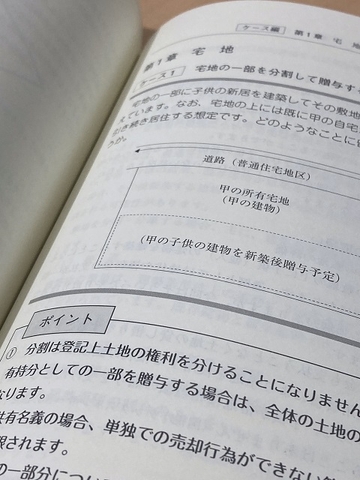 ケース編 第1章 宅 地
第1章 宅 地
ケース1 宅地の一部を分割して贈与す
宅地の一部に子供の新居を建築してその敷地
えています。なお、宅地の上には既に甲の自宅
引き続き居住する想定です。どのようなことに
うか。
道路（普通住宅地区）
甲の所有宅地
（甲の建物）
（甲の子供の建物を新築後贈与予定）
ポイント
① 分割は登記上土地の権利を分けることになりません
有持分としての一部を贈与する場合は、全体の土地の
なります。
共有名義の場合、単独での売却行為ができない
限されます。
の一部分につい